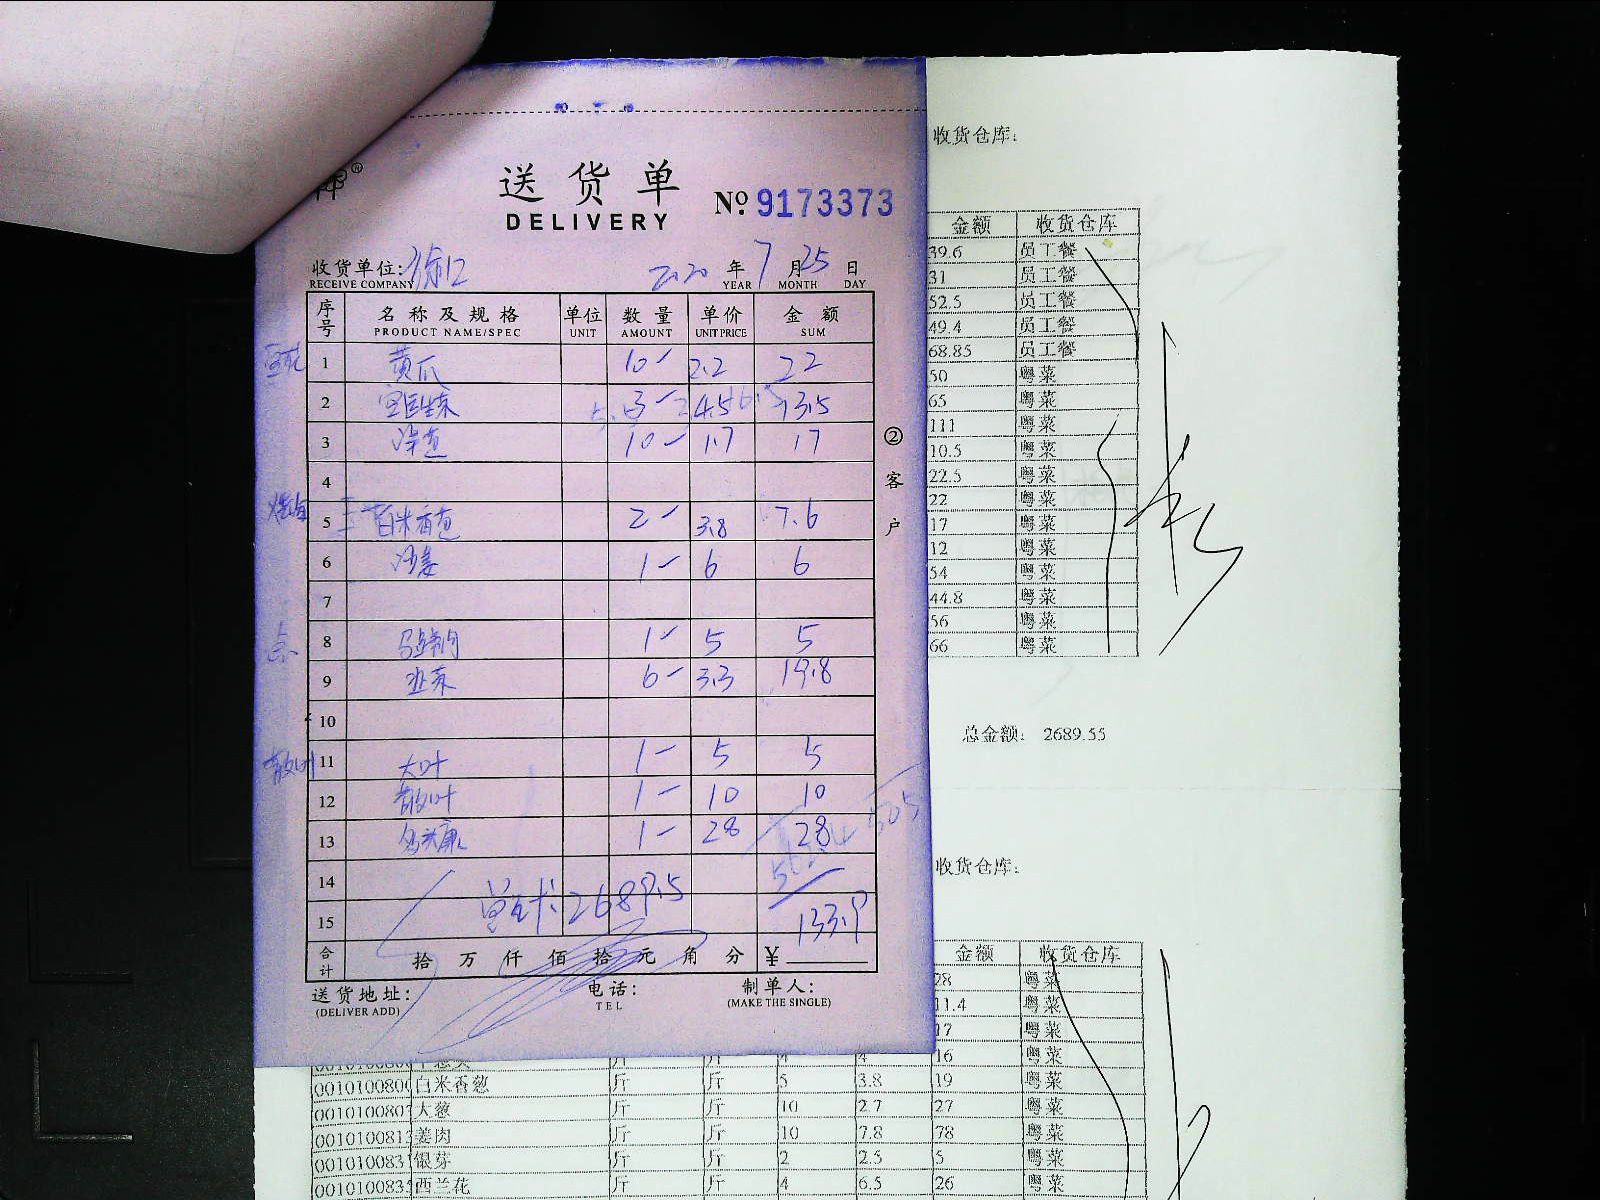 送货单
DELIVERY
№ 9173373
收货单位:
RECEIVE COMPANY
2020 年 7 月 25 日
YEAR MONTH DAY
序号 名称及规格 单位 数量 单价 金额
PRODUCT NAME/SPEC UNIT AMOUNT UNIT PRICE SUM
1 黄瓜 10 2.2 22
2 3 4.5 13.5
3 洋葱 10 1.7 17
4
5 白米香葱 2 3.8 7.6
6 沙姜 1 6 6
7
点
8 1 5 5
9 韭菜 6 3.3 19.8
10
11 大叶 1 5 5
散叶
12 散叶 1 10 10
13 1 28 28
14
15 2689.5 133.9
合计 拾 万 仟 佰 拾 元 角 分 ¥
送货地址: 电话: 制单人:
(DELIVER ADD) TEL (MAKE THE SINGLE)
② 客户
收货仓库:
金额 收货仓库
39.6 员工餐
31 员工餐
52.5 员工餐
49.4 员工餐
68.85 员工餐
50 粤菜
65 粤菜
111 粤菜
10.5 粤菜
22.5 粤菜
22 粤菜
17 粤菜
12 粤菜
54 粤菜
44.8 粤菜
56 粤菜
66 粤菜
总金额: 2689.55
收货仓库:
金额 收货仓库
28 粤菜
11.4 粤菜
17 粤菜
斤 斤 4 4 16 粤菜
白米香葱 斤 斤 5 3.8 19 粤菜
大葱 斤 斤 10 2.7 27 粤菜
姜肉 斤 斤 10 7.8 78 粤菜
银芽 斤 斤 2 2.5 5 粤菜
西兰花 斤 斤 4 6.5 26 粤菜